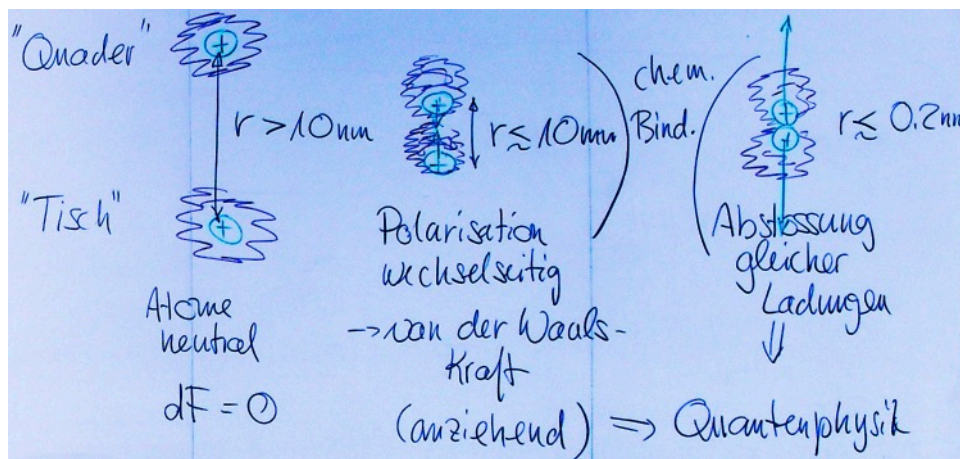 "Quader"
r > 10nm
"Tisch"
Atome
neutral
dF = 0
r ≲ 10nm
Polarisation
wechselseitig
→ van der Waals-
Kraft
(anziehend) ⇒ Quantenphysik
chem.
Bind.
r ≲ 0.2nm
Abstossung
gleicher
Ladungen
⇓